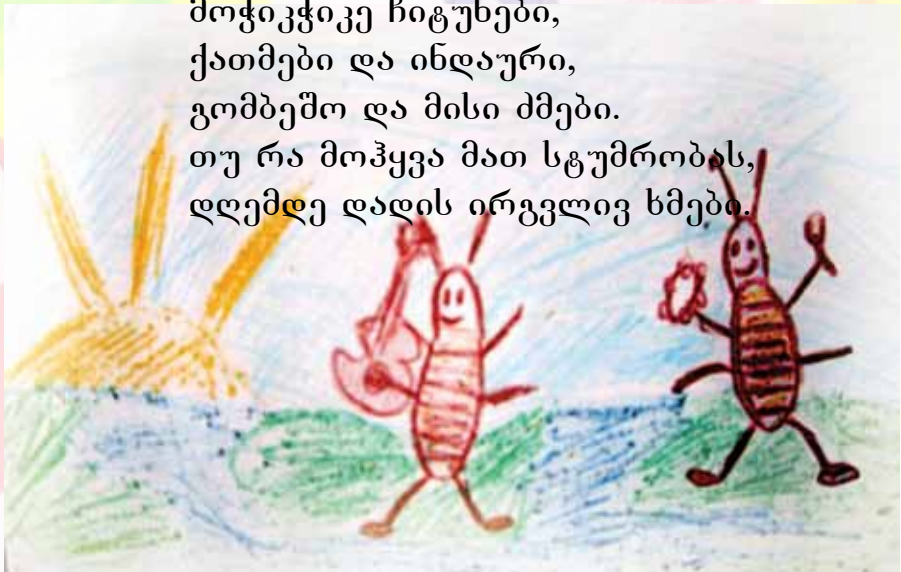 მოჭიკჭიკე ჩიტუხები,
ქათმები და ინდაური,
გომბეშო და მისი ძმები.
თუ რა მოჰყვა მათ სტუმრობას,
დღემდე დადის ირგვლივ ხმები.